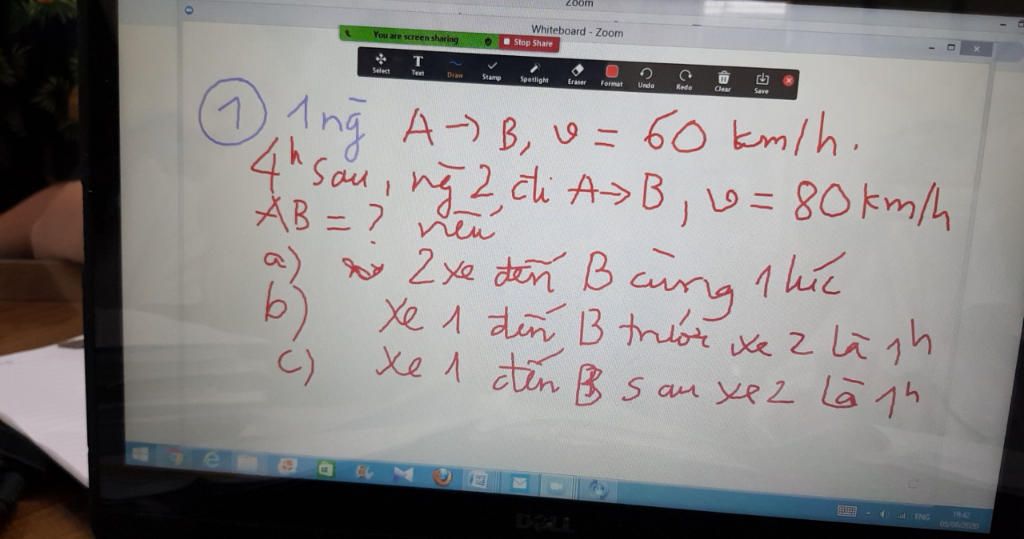 Zoom
Whiteboard - Zoom
You are screen sharing Stop Share
Select Text Draw Stamp Spotlight Eraser Format Undo Redo Clear Save
1 1 ng̃ A → B, v = 60 km/h.
4h sau, ng̃ 2 đi A → B, v = 80 km/h
AB = ? nếu
a) 2 xe đến B cùng 1 lúc
b) xe 1 đến B trước xe 2 là 1h
c) xe 1 đến B sau xe 2 là 1h
ENG
19:42
05/08/2020
DELL